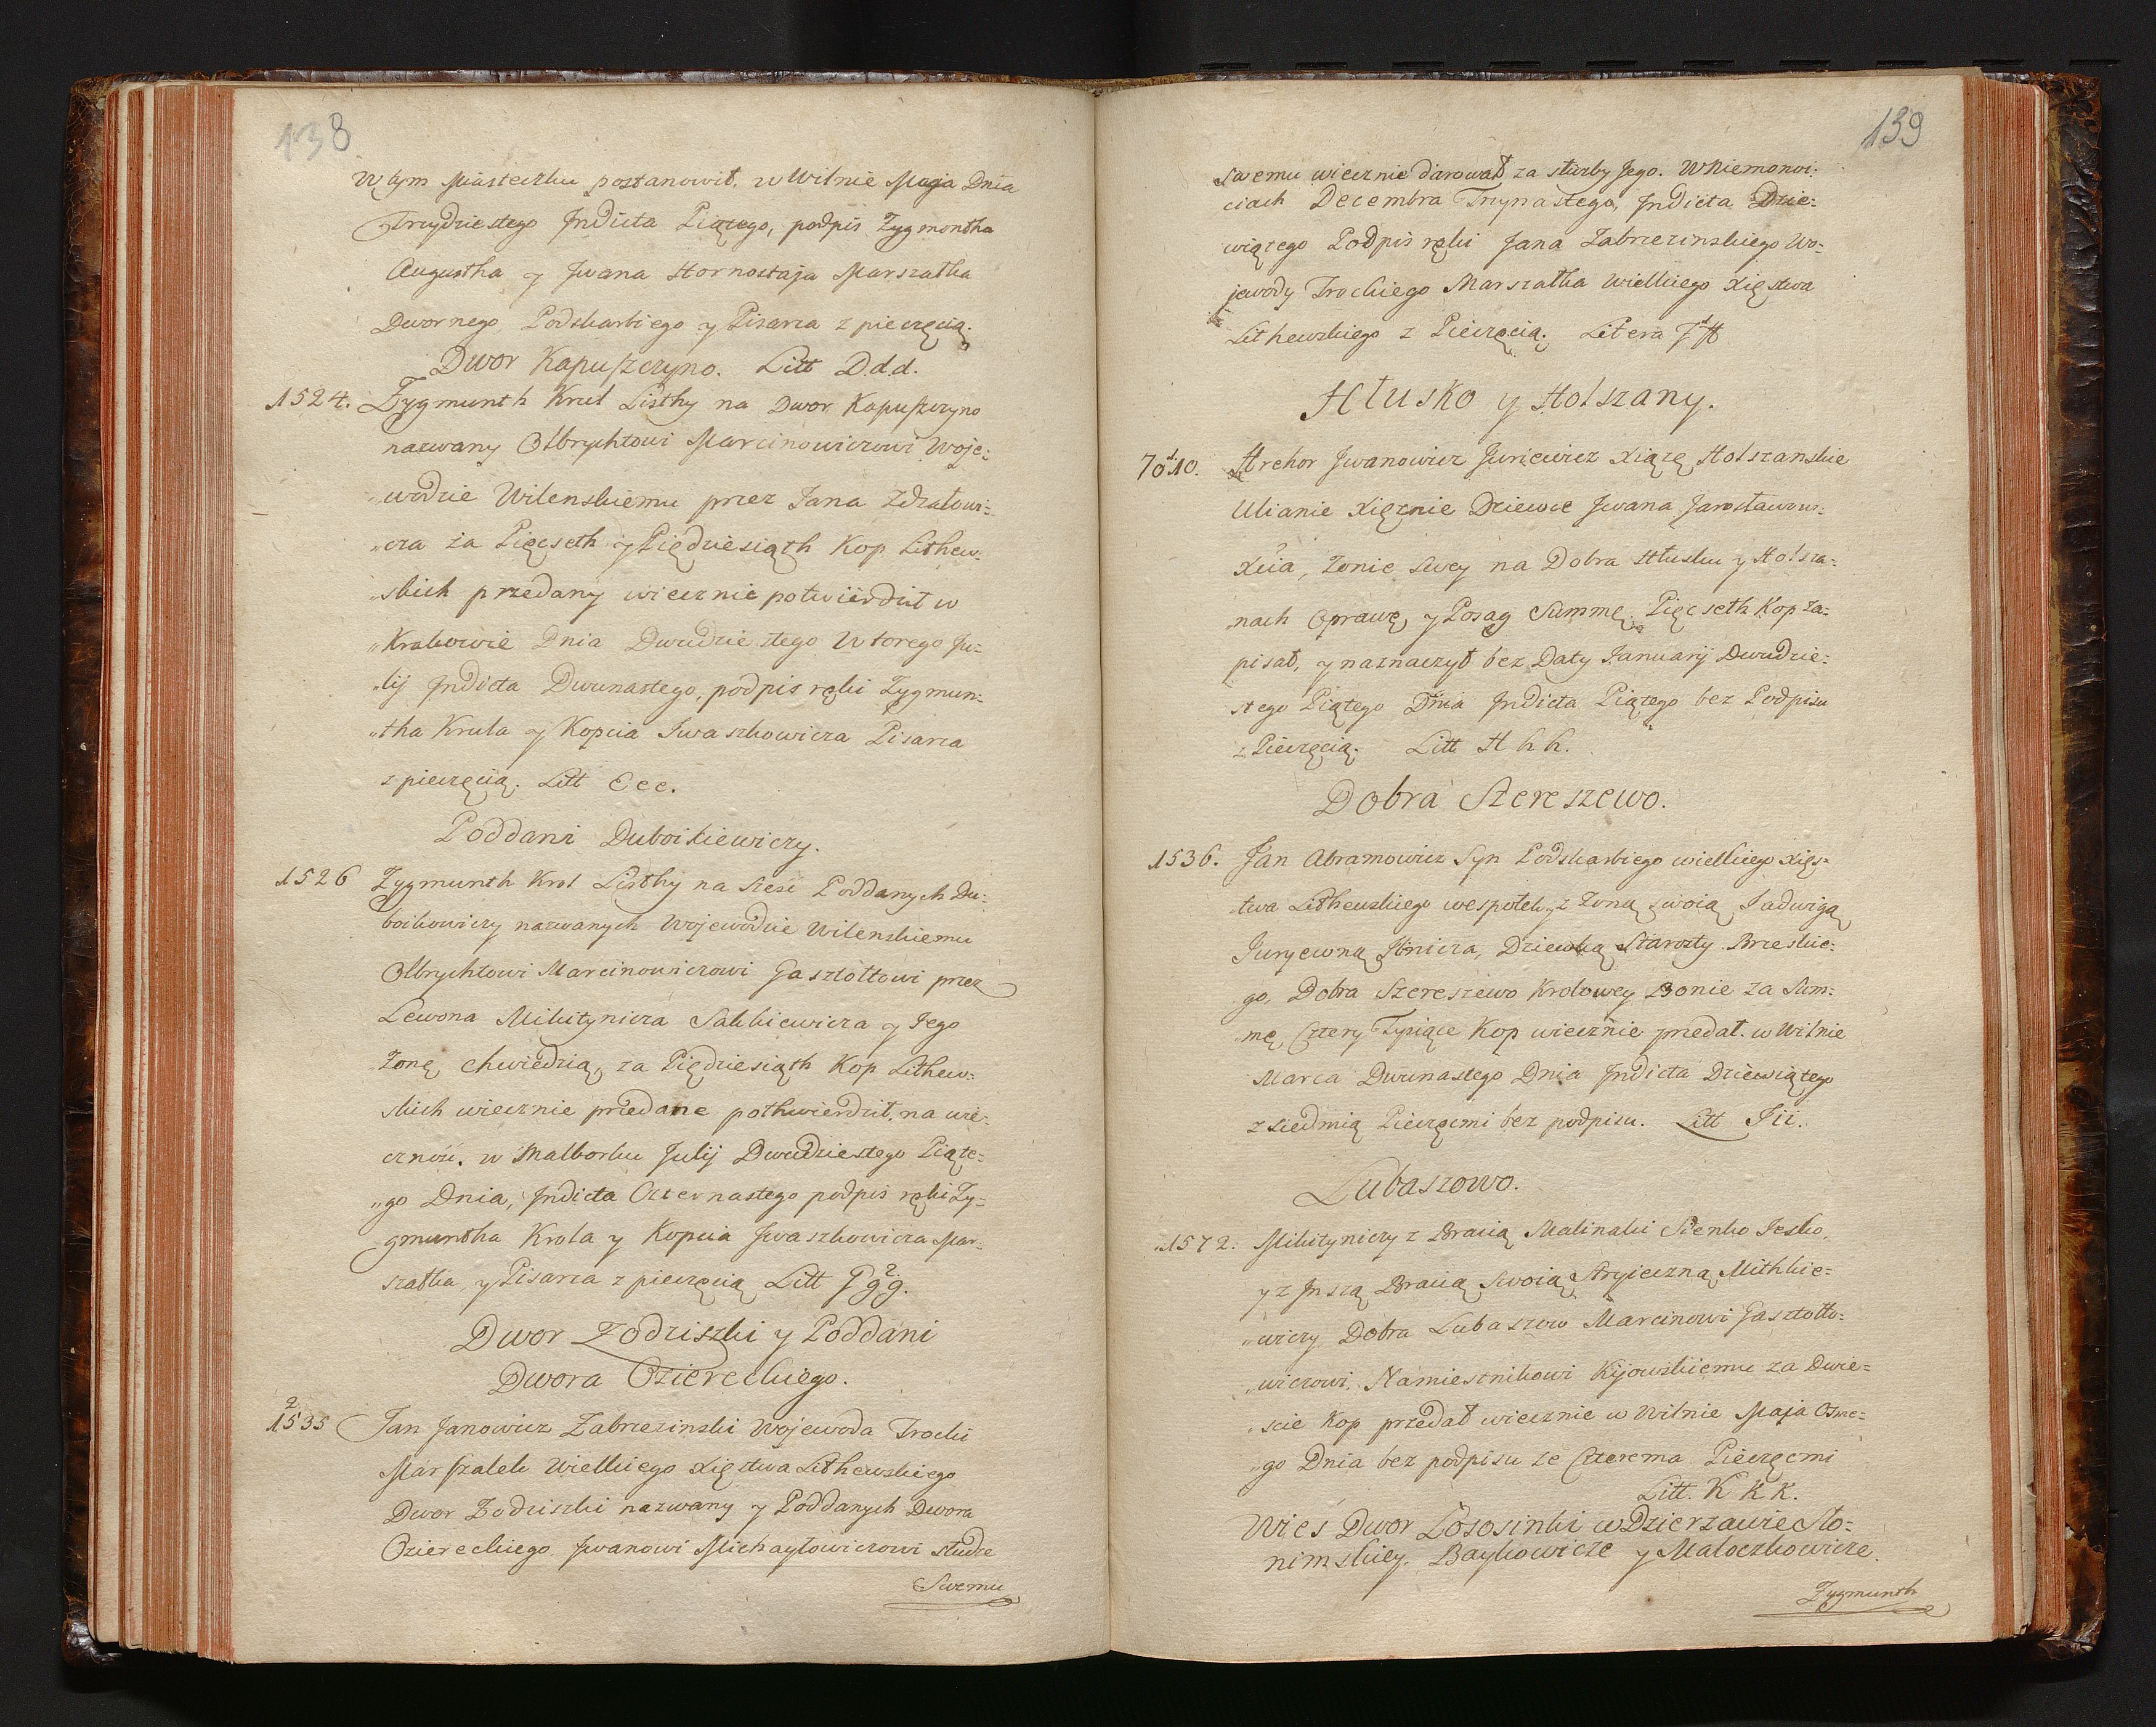 138
W tym Miasteczku postanowił. w Wilnie Maja Dnia
Trzydziestego Jndicta Piątego, podpis Zygmontha
Augustha y Jwana Hornostaja Marszałka
Dwornego Podskarbiego y Pisarza z pieczęcią.
Dwor Kapuszczyno. Litt D.d.d.
1524. Zygmunth Krul Listhy na Dwor Kapuszczyno
nazwany Olbrychtowi Marcinowiczowi Woje=
„wodzie Wilenskiemu przez Jana Zdzatowi=
„cza za Pięcseth y Pięدziesiąth Kop Lithew=
„skich przedany wiecznie potwierdził w
„Krakowie Dnia Dwudziestego Wtorego Ju=
„lij Jndicta Dwunastego, podpis ręki Zygmun=
„tha Krula y Kopcia Jwaszkowicza Pisarza
z pieczęcią. Litt Eee.
Poddani Duboikiewiczy.
1526 Zygmunth Krol Listhy na Szesc Poddanych Du=
boikowiczy nazwanych Wojewodzie Wilenskiemu
Olbrychtowi Marcinowiczowi Gasztołtowi przez
Lewona Mikitynicza Sakkiewicza y Jego
Zonę Chwiedzią, za Pięدziesiąth Kop Lithew=
skich wiecznie przedane pothwierdził na wie=
cznosc. w Malborku Julij Dwudziestego Piąte=
„go Dnia, Jndicta Czternastego podpis ręki Zy=
gmuntha Krola y Kopcia Jwaszkowicza Mar=
szałka y Pisarza z pieczęcią Litt Ggg.
Dwor Zodziszki y Poddani
Dwora Ozereckiego.
1535 Jan Janowicz Zabrzezinski Wojewoda Trocki
Marszalek Wielkiego Xięstwa Lithewskiego
Dwor Zodziszki nazwany y Poddanych Dwora
Oziereckiego Jwanowi Michayłowiczowi słudze
Swemu
139
Swemu wiecznie darował za służby Jego. W Niemonoi=
ciach Decembra Trzynastego, Jndicta Dzie=
wiątego Podpis ręki Jana Zabrzezinskiego Wo=
jewody Trockiego Marszałka Wielkiego Xięstwa
Lithewskiego z Pieczęcią. Litera
Hłusko y Holszany.
7010. Hrehor Jwanowicz Juriewicz Xiązę Holszanskie
Ulianie Xięznie Dziewce Jwana Jarosławow=
Xcia, Zonie Swey na Dobra Hłusku y Holsza=
„nach Oprawę y Posag Summę Pięcseth Kop za=
pisał, y naznaczył bez Daty Januarij Dwudzie=
stego Piątego Dnia Jndicta Piątego bez Podpisu
z Pieczęcią. Litt H h h.
Dobra Szereszewo.
1536. Jan Abramowicz Syn Podskarbiego wielkiego Xięs=
twa Lithewskiego wespołek z Zoną swoią Jadwigą
Juryewną Jlinicza, Dziewką Starosty Brzeskie=
go, Dobra Szereszewo Krolowey Bonie za Sum=
„mę Cztery Tysiące Kop wiecznie przedał. w Wilnie
Marca Dwunastego Dnia Jndicta Dziewiątego
z siedmią Pieczęcmi bez podpisu. Litt Iii.
Lubaszowo.
1572. Mikityniczy z Bracią Malinaki Sienko Jesko,
y z Jnszą Bracią Swoią Stryieczną Mithkie=
„wiczy Dobra Lubaszow Marcinowi Gasztołto=
„wiczowi, Namiestnikowi Kijowskiemu za Dwie=
„scie Kop przedał wiecznie w Wilnie Maja Osme=
„go Dnia bez podpisu ze Czterema Pieczęcmi
Litt. K K K.
Wies Dwor Łososinki w Dzierzawie Sło=
nimskiey. Baykowicze y Małoczkowicze.
Zygmunth